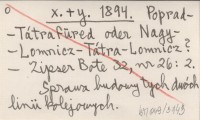 o
x. + y. 1894. Poprad-
-Tátrafüred oder Nagy-
-Lomnicz-Tátra-Lomnicz?
- Zipser Bote 32, nr 26: 2.
Sprawa budowy tych dwóch
linii kolejowych.